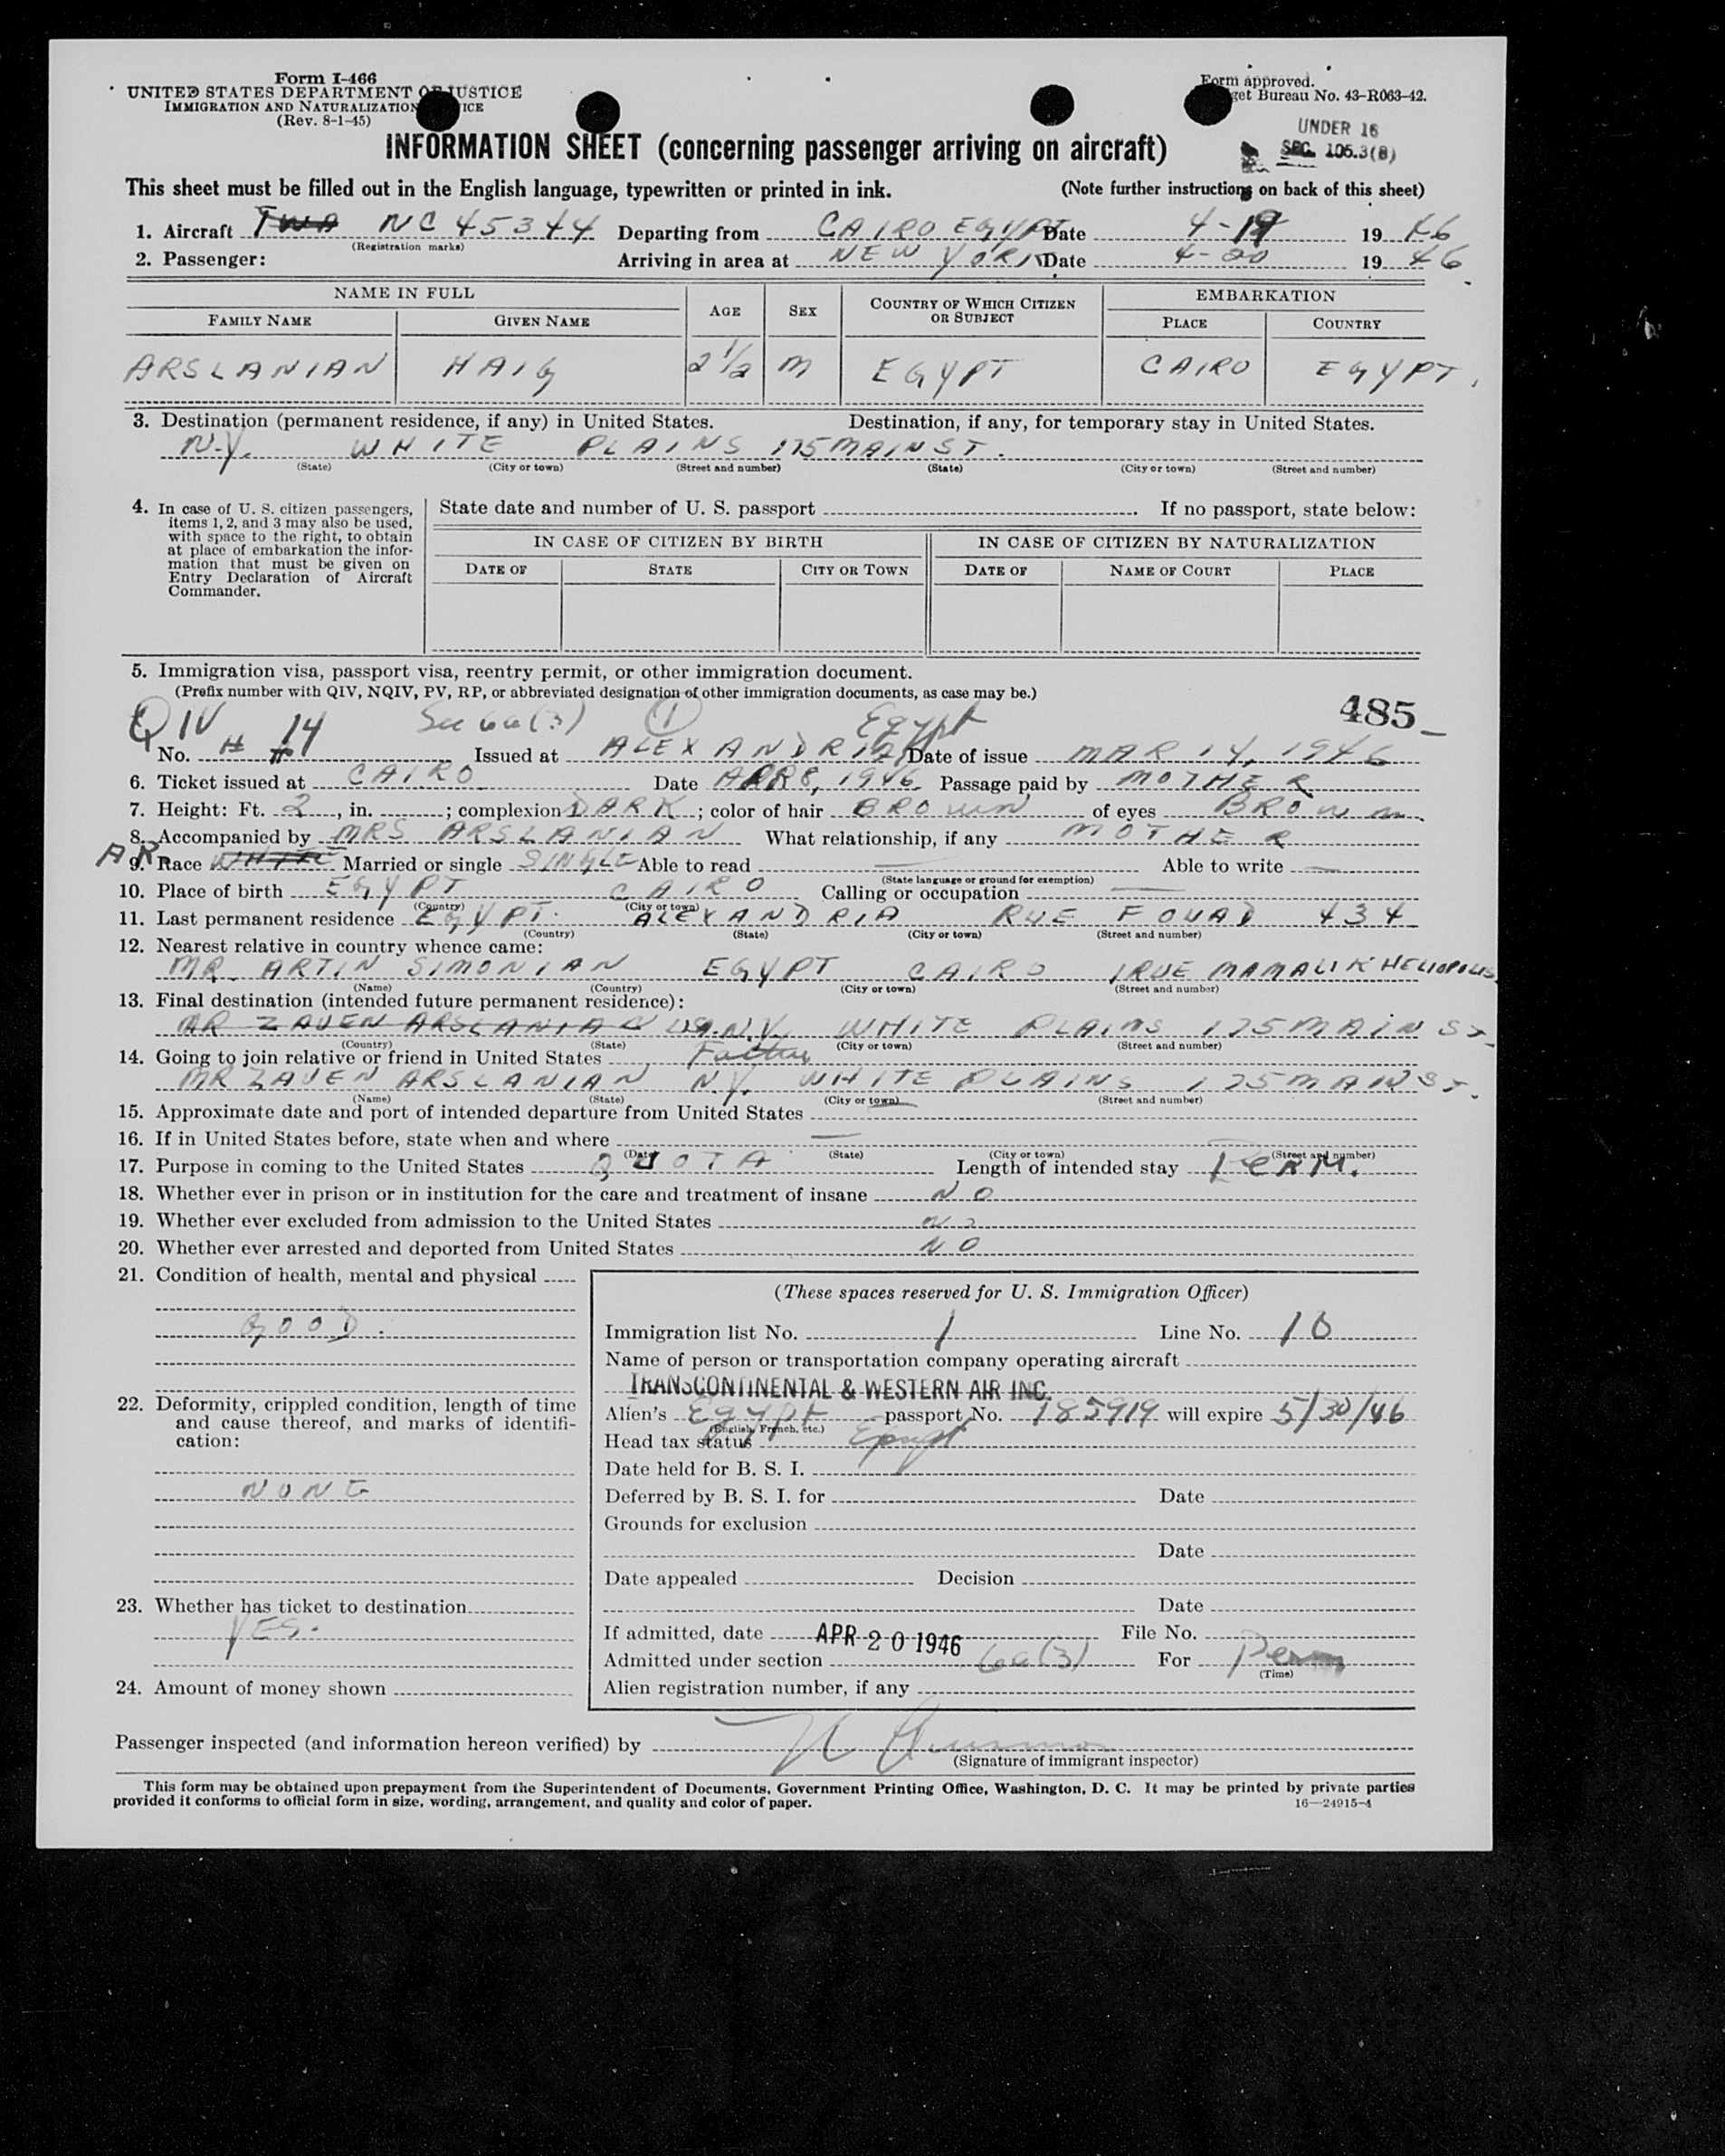 Form I-466
UNITED STATES DEPARTMENT OF JUSTICE
IMMIGRATION AND NATURALIZATION ICE
(Rev. 8-1-45)
Form approved.
get Bureau No. 43-R063-42.
UNDER 16
SEC. 105.3(B)
INFORMATION SHEET (concerning passenger arriving on aircraft)
This sheet must be filled out in the English language, typewritten or printed in ink. (Note further instructions on back of this sheet)
1. Aircraft TWA NC 45344 Departing from CAIRO EGYPT Date 4-19 1946
(Registration marks)
2. Passenger: Arriving in area at NEW YORK Date 4-20 1946
NAME IN FULL AGE SEX COUNTRY OF WHICH CITIZEN OR SUBJECT EMBARKATION
FAMILY NAME GIVEN NAME PLACE COUNTRY
ARSLANIAN HAIG 2 1/2 M EGYPT CAIRO EGYPT.
3. Destination (permanent residence, if any) in United States. Destination, if any, for temporary stay in United States.
N.Y. WHITE PLAINS 175 MAIN ST.
(State) (City or town) (Street and number) (State) (City or town) (Street and number)
4. In case of U. S. citizen passengers, items 1, 2, and 3 may also be used, with space to the right, to obtain at place of embarkation the information that must be given on Entry Declaration of Aircraft Commander.
State date and number of U. S. passport . If no passport, state below:
IN CASE OF CITIZEN BY BIRTH IN CASE OF CITIZEN BY NATURALIZATION
DATE OF STATE CITY OR TOWN DATE OF NAME OF COURT PLACE
5. Immigration visa, passport visa, reentry permit, or other immigration document.
(Prefix number with QIV, NQIV, PV, RP, or abbreviated designation of other immigration documents, as case may be.)
485
QIV 14 Sec 6a(3) 1 Egypt
No. # Issued at ALEXANDRIA Date of issue MAR 14, 1946
6. Ticket issued at CAIRO Date APR 8, 1946 Passage paid by MOTHER
7. Height: Ft. 2, in. ; complexion DARK; color of hair BROWN of eyes BROWN
8. Accompanied by MRS ARSLANIAN What relationship, if any MOTHER
AR.
9. Race WHITE Married or single SINGLE Able to read — Able to write —
(State language or ground for exemption)
10. Place of birth EGYPT CAIRO Calling or occupation —
(Country) (City or town)
11. Last permanent residence EGYPT. ALEXANDRIA RUE FOUAD 434
(Country) (State) (City or town) (Street and number)
12. Nearest relative in country whence came:
MR. ARTIN SIMONIAN EGYPT CAIRO 1 RUE MAMALIK HELIOPOLIS
(Name) (Country) (City or town) (Street and number)
13. Final destination (intended future permanent residence):
MR ZAVEN ARSLANIAN N.Y. WHITE PLAINS 175 MAIN ST
(Country) (State) (City or town) (Street and number)
14. Going to join relative or friend in United States Father
MR ZAVEN ARSLANIAN N.Y. WHITE PLAINS 175 MAIN ST.
(Name) (State) (City or town) (Street and number)
15. Approximate date and port of intended departure from United States —
16. If in United States before, state when and where —
(Date) (State) (City or town) (Street and number)
17. Purpose in coming to the United States QUOTA Length of intended stay PERM.
18. Whether ever in prison or in institution for the care and treatment of insane NO
19. Whether ever excluded from admission to the United States NO
20. Whether ever arrested and deported from United States NO
21. Condition of health, mental and physical
GOOD.
22. Deformity, crippled condition, length of time and cause thereof, and marks of identification:
NONE
23. Whether has ticket to destination
YES.
24. Amount of money shown
(These spaces reserved for U. S. Immigration Officer)
Immigration list No. 1 Line No. 10
Name of person or transportation company operating aircraft
TRANSCONTINENTAL & WESTERN AIR INC.
Alien's Egypt passport No. 185919 will expire 5/30/46
(English, French, etc.)
Head tax status Exempt
Date held for B. S. I.
Deferred by B. S. I. for Date
Grounds for exclusion
Date
Date appealed Decision
Date
If admitted, date APR 20 1946 File No.
Admitted under section 6a(3) For Perm
(Time)
Alien registration number, if any
Passenger inspected (and information hereon verified) by
(Signature of immigrant inspector)
This form may be obtained upon prepayment from the Superintendent of Documents, Government Printing Office, Washington, D. C. It may be printed by private parties
provided it conforms to official form in size, wording, arrangement, and quality and color of paper. 16—24915-4